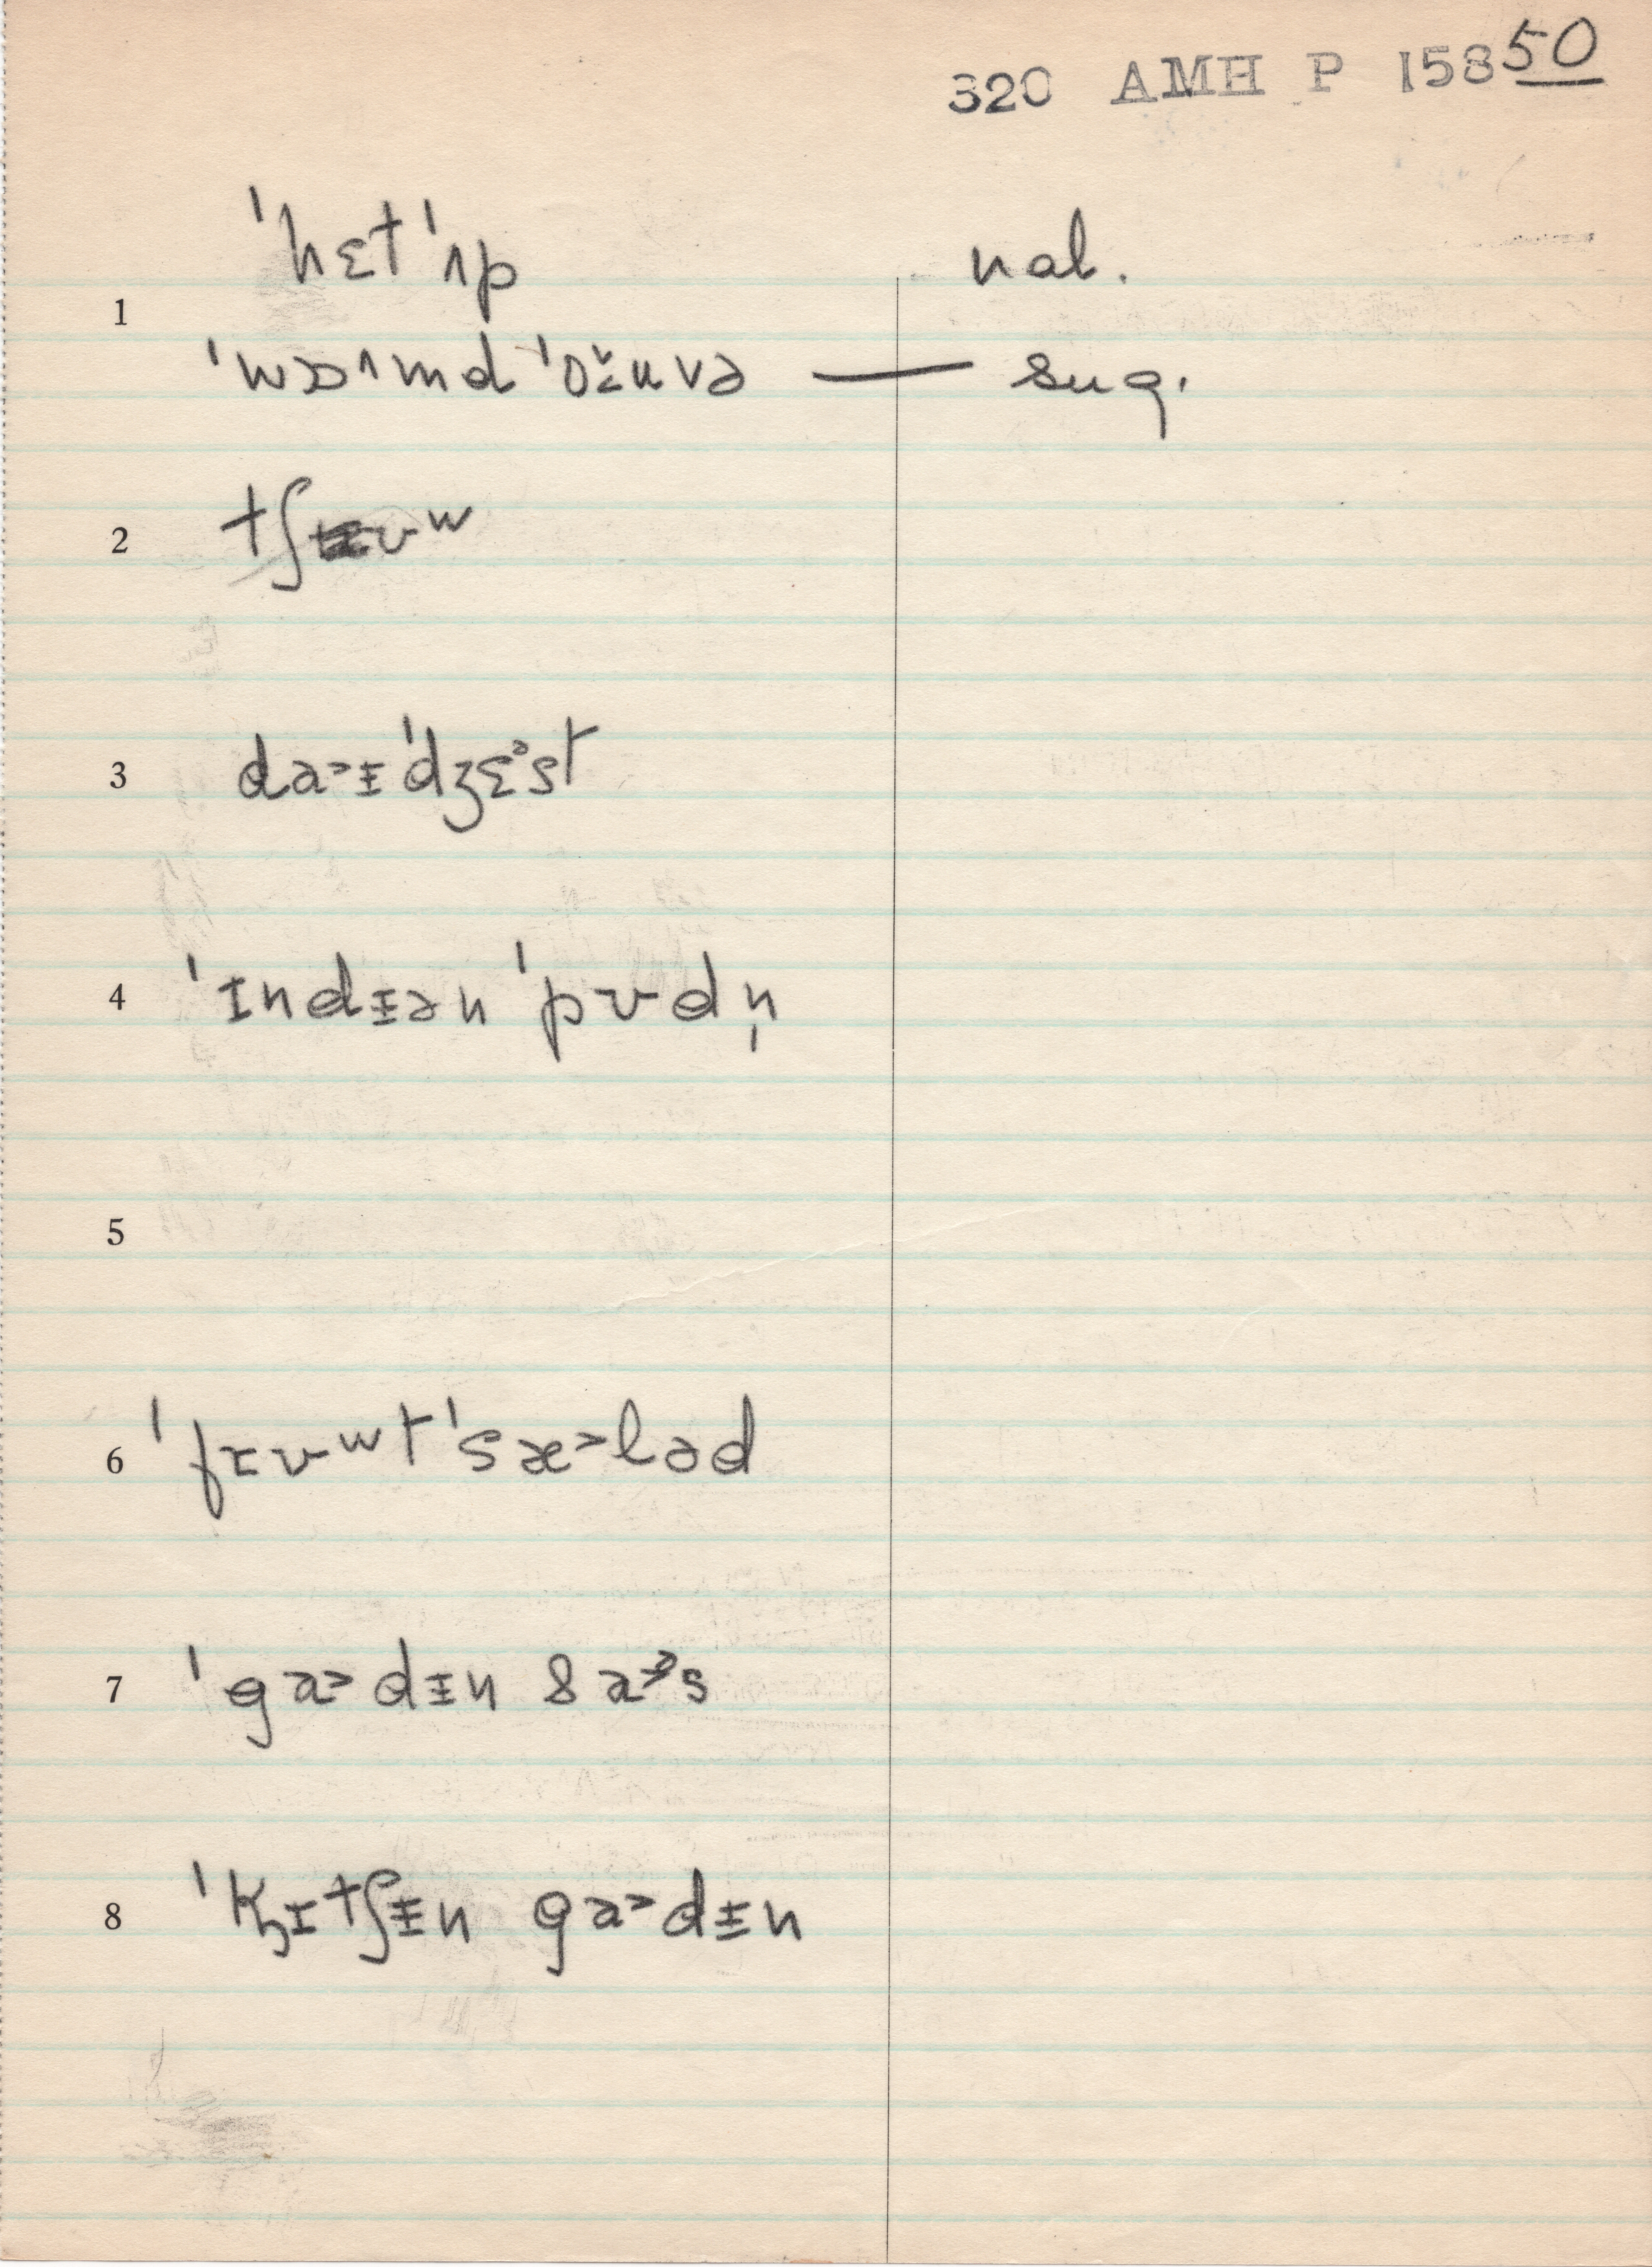 320 AMH P 15850
ˈhɛtˈʌp nat.
1
ˈwɔ˄md ˈoˇ̵ʊvə — sug.
2 tʃʊʷ
3 da˃ɪ̵ˈdʒɛᵊst
4 ˈɪndɪ̵ən ˈpʊdn̩
5
6 ˈfɪʊʷtˈsæ˃ləd
7 ˈga˃dɪ̵n sa˃ᵊs
8 ˈk̡ɪtʃɪ̵n ga˃dɪ̵n